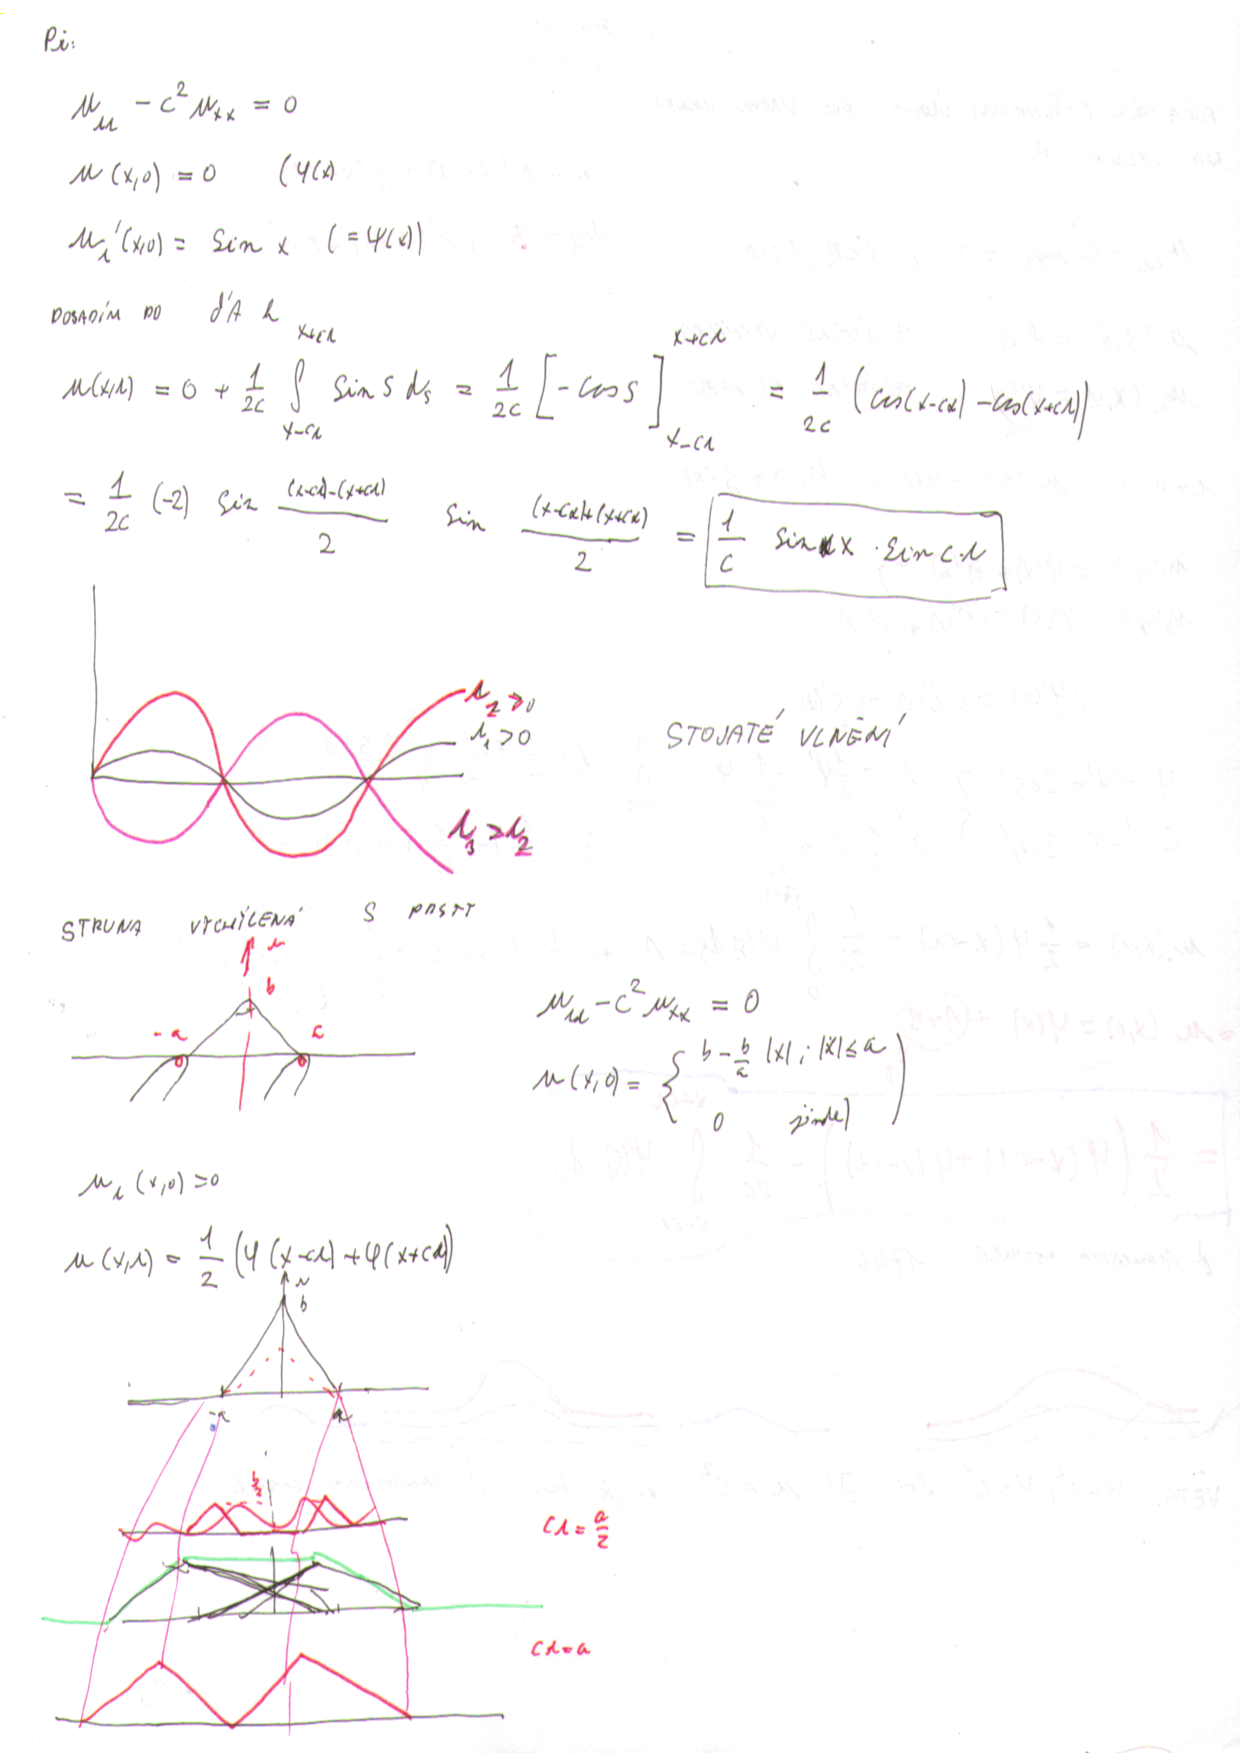 Př:
u_tt - c² u_xx = 0
u(x,0) = 0 (φ(x)
u_t'(x,0) = sin x (= ψ(x))
DOSADÍM DO d'A
u(x,t) = 0 + 1/2c ∫_{x-ct}^{x+ct} sin s ds = 1/2c [-cos s]_{x-ct}^{x+ct} = 1/2c (cos(x-ct) - cos(x+ct))
= 1/2c (-2) sin ((x-ct)-(x+ct))/2 sin ((x-ct)+(x+ct))/2 = 1/c sin x · sin c·t
t₂ > 0
t₁ > 0
STOJATÉ VLNĚNÍ
t₃ > t₂
STRUNA VYCHÝLENÁ S PRSTY
u
b
-a
u_tt - c² u_xx = 0
u(x,0) = { b - b/a |x| ; |x| ≤ a
0 jinde )
u_t(x,0) = 0
u(x,t) = 1/2 (φ(x-ct) + φ(x+ct))
u
b
-a a
b/2
ct = a/2
ct = a